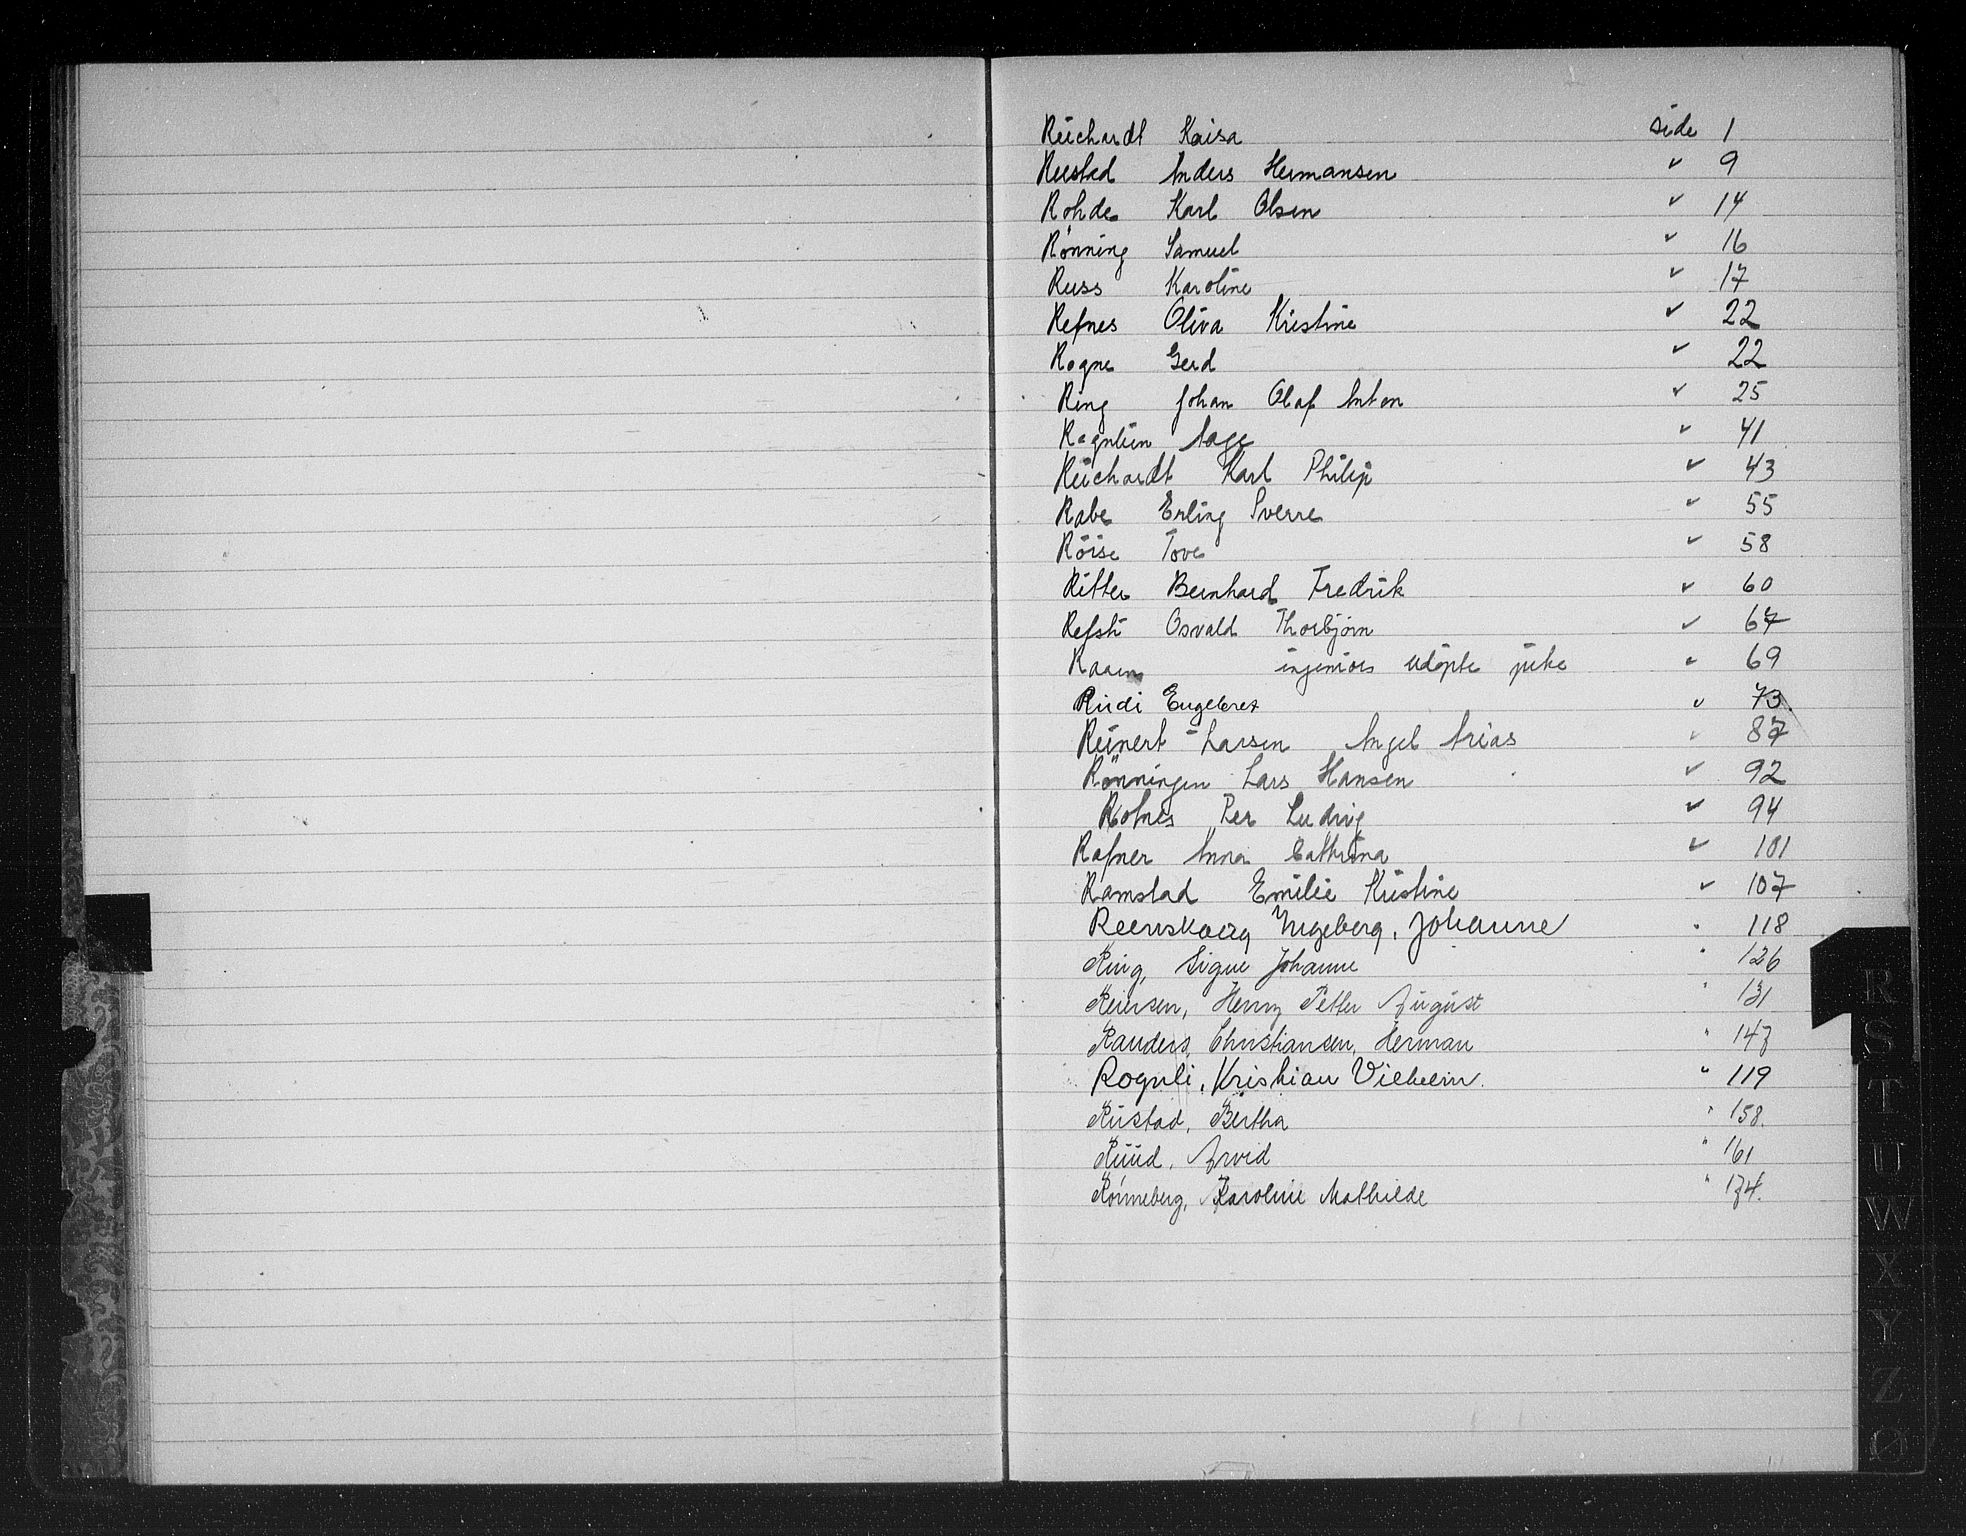 Reichardt Kaisa side 1
Rustad Anders Hermansen " 9
Rohde Karl Olsen " 14
Rønning Samuel " 16
Russ Karoline " 17
Refnes Oliva Kristine " 22
Rogne Gerd " 22
Ring Johan Olaf Anton " 25
Rognlien Aage " 41
Reichardt Karl Philip " 43
Rabe Erling Sverre " 55
Röise Tove " 58
Ritter Bernhard Fredrik " 60
Refsti Osvald Thorbjørn " 67
Raaen ingeniørs udøpte pike " 69
Rudi Engebret " 73.
Reinert-Larsen Angel Arias " 87
Rönningen Lars Hansen " 92
Rofnes Per Ludvig " 94
Rafner Anna Cathrina " 101
Ramstad Emilie Kristine " 107
Reenskaug Ingeborg, Johanne " 118
Ring, Signe Johanne " 126
Reiersen, Henry Petter August " 131
Randers, Christiansen, Herman " 147
Rognli, Kristian Vilhelm. " 119
Rustad, Bertha " 158.
Ruud, Arvid " 161
Rønneberg, Karoline Mathilde " 174.
R
S
T
U
W
X
Y
Z
Ø